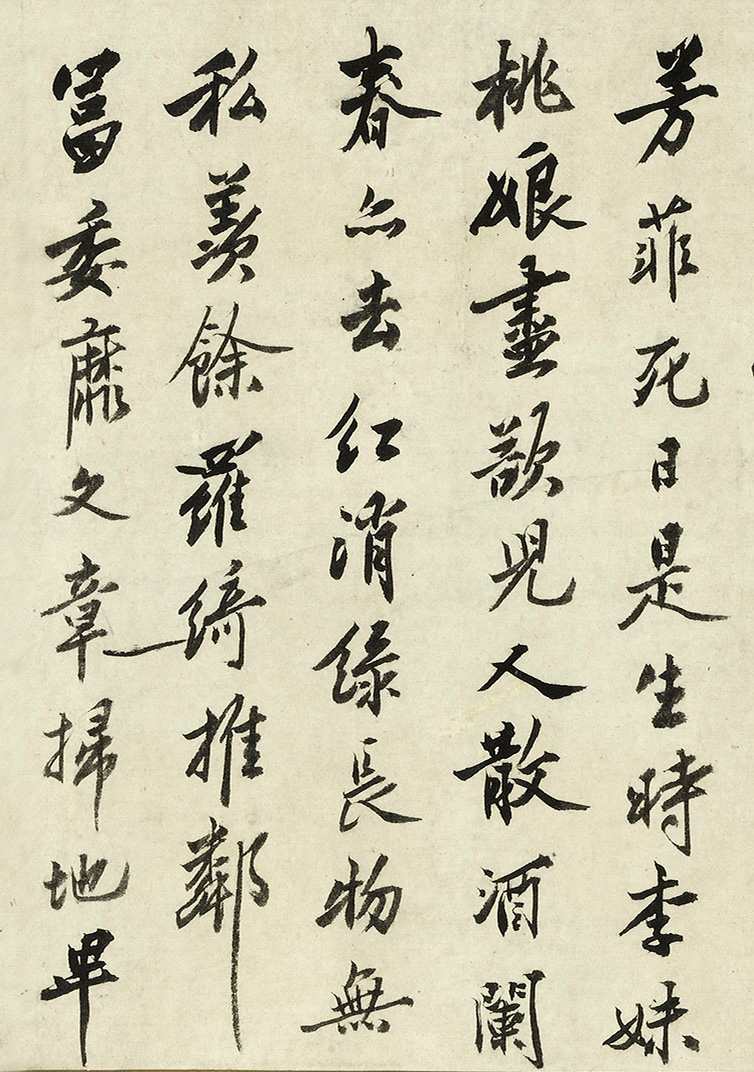 芳菲死日是生時李妹
桃娘盡欲兒人散酒闌
春亦去紅消綠長物無
私羨餘羅綺推鄰
富委靡文章掃地卑